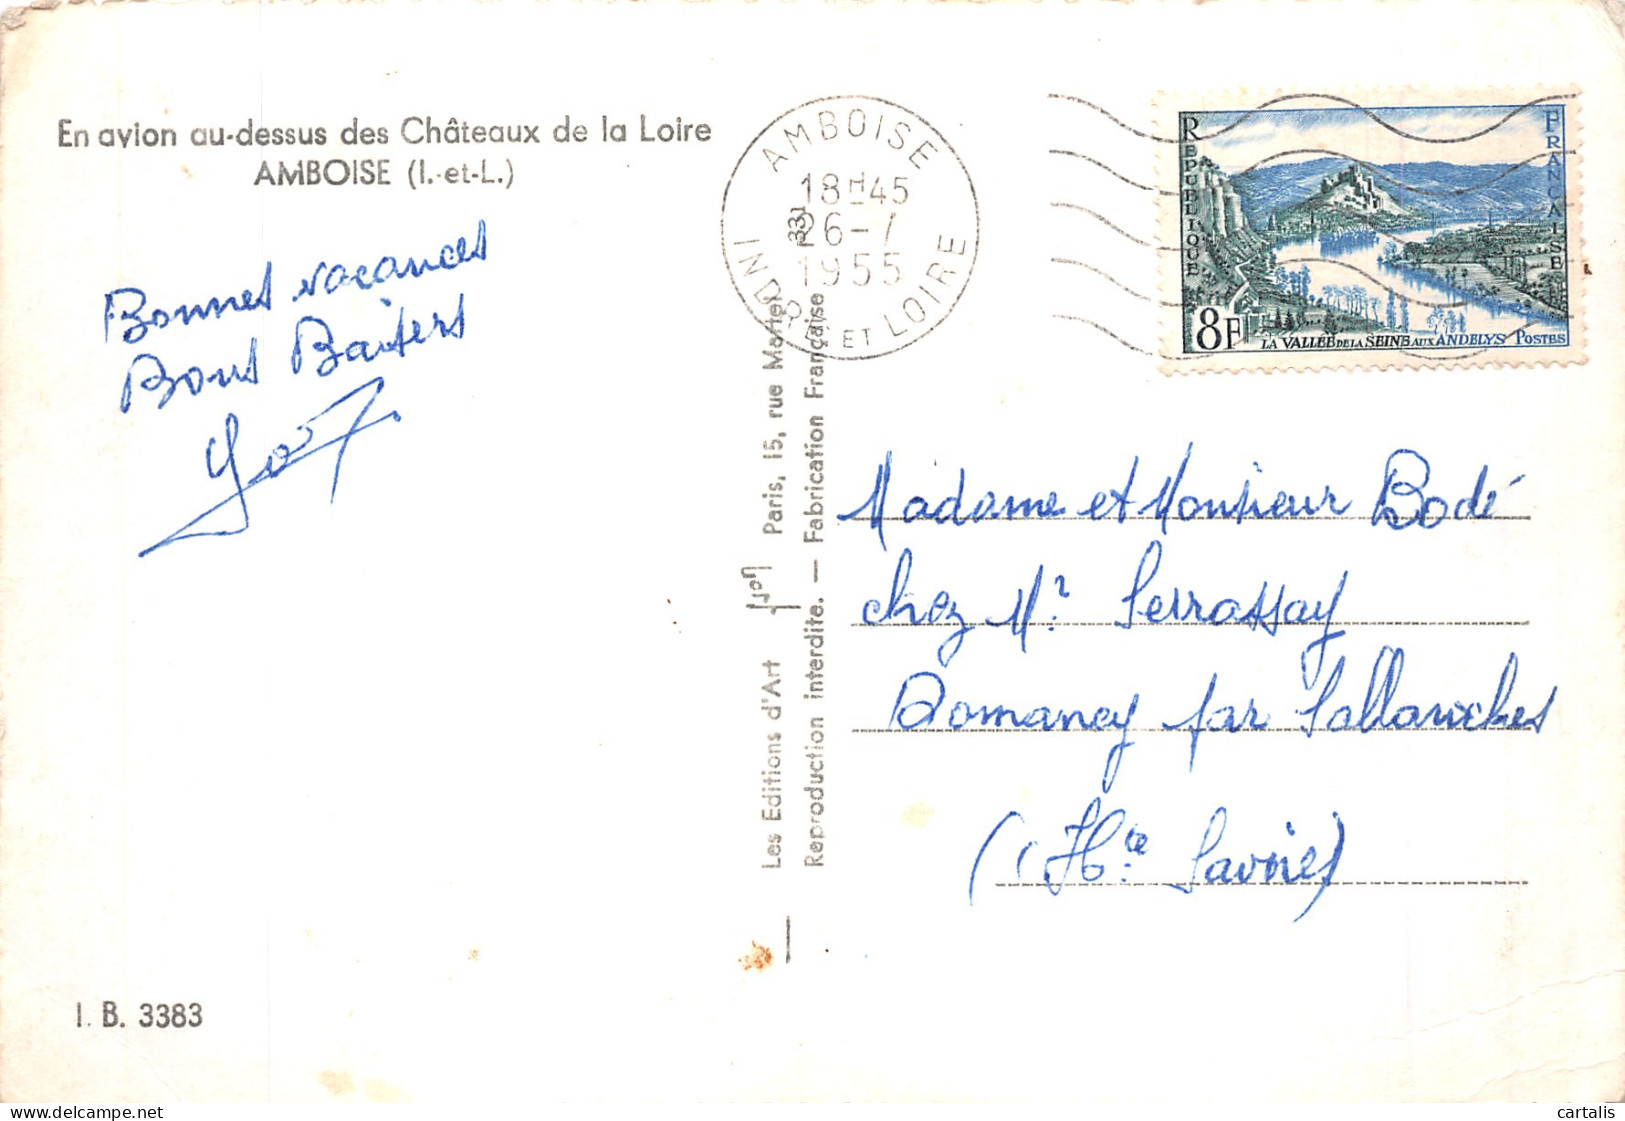 En avion au-dessus des Châteaux de la Loire
AMBOISE (I.-et-L.)
Bonnes vacances
Bons Baisers
AMBOISE
18H45
26-7
1955
INDRE ET LOIRE
RÉPUBLIQUE
FRANÇAISE
8F
LA VALLÉE DE LA SEINE AUX ANDELYS POSTES
Les Editions d'Art Yvon Paris, 15, rue Martel
Reproduction interdite. — Fabrication Française
331
Madame et Monsieur Bodé
chez Mr Serrassay
Domancy par Sallanches
(Hte Savoie)
I. B. 3383
www.delcampe.net
cartalis